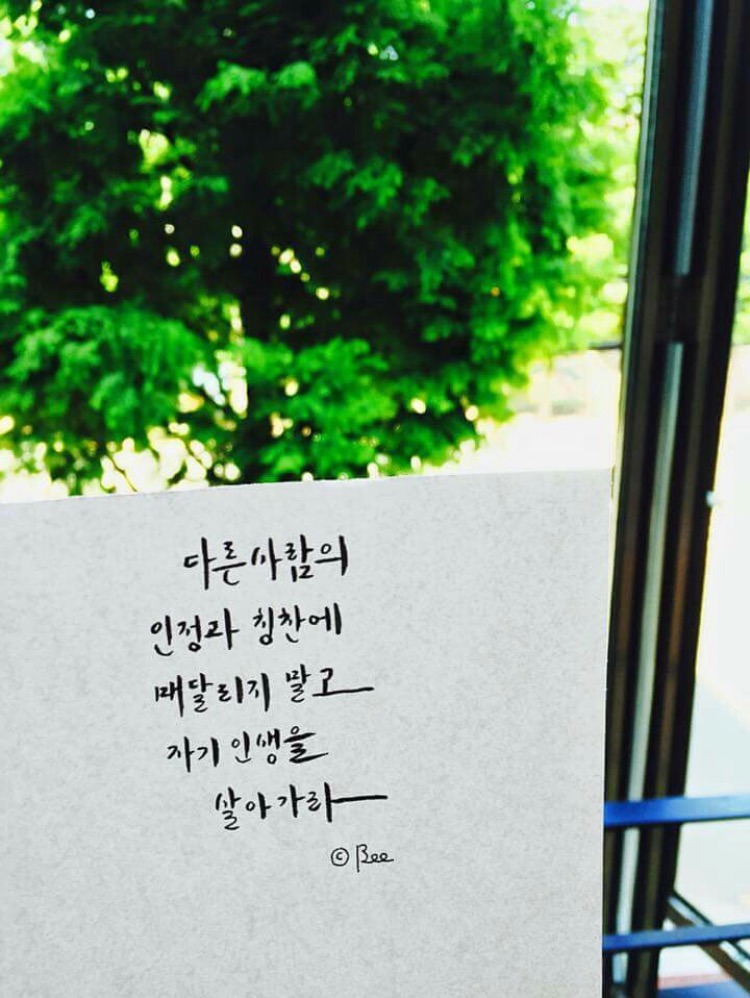 다른 사람의
인정과 칭찬에
매달리지 말고
자기 인생을
살아가라
© Bee